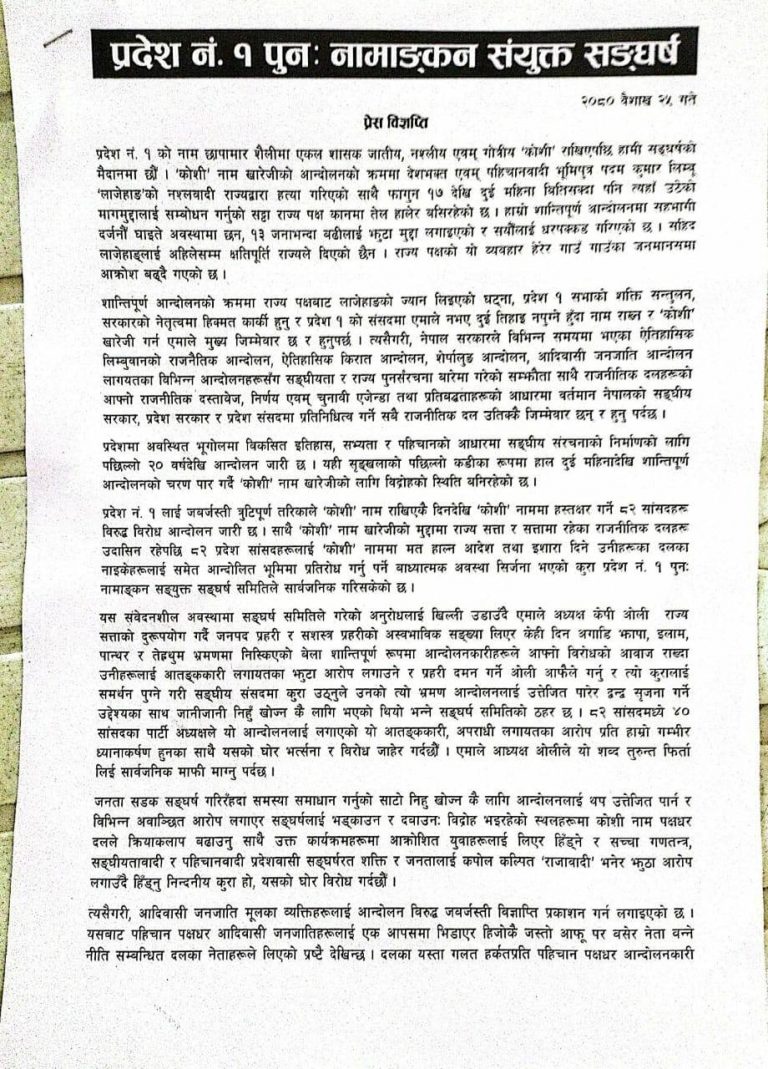 प्रदेश नं. १ पुनः नामाङ्कन संयुक्त सङ्घर्ष
२०८० वैशाख २५ गते
प्रेस विज्ञप्ति
प्रदेश नं. १ को नाम छापामार शैलीमा एकल शासक जातीय, नश्लीय एवम् गोत्रीय 'कोशी' राखिएपछि हामी सङ्घर्षको
मैदानमा छौं । 'कोशी' नाम खारेजीको आन्दोलनको क्रममा देशभक्त एवम् पहिचानवादी भूमिपुत्र पदम कुमार लिम्बू
'लाजेहाङ'को नश्लवादी राज्यद्वारा हत्या गरिएको साथै फागुन १७ देखि दुई महिना बितिसक्दा पनि त्यहाँ उठेको
मागमुद्दालाई सम्बोधन गर्नुको सट्टा राज्य पक्ष कानमा तेल हालेर बसिरहेको छ । हाम्रो शान्तिपूर्ण आन्दोलनमा सहभागी
दर्जनौं घाइते अवस्थामा छन्, १३ जनाभन्दा बढीलाई झुटा मुद्दा लगाइएको र सयौंलाई धरपक्कड गरिएको छ । सहिद
लाजेहाङ्लाई अहिलेसम्म क्षतिपूर्ति राज्यले दिएको छैन । राज्य पक्षको यो व्यवहार हेरेर गाउँ गाउँका जनमानसमा
आक्रोश बढ्दै गएको छ ।
शान्तिपूर्ण आन्दोलनको क्रममा राज्य पक्षबाट लाजेहाङको ज्यान लिइएको घट्ना, प्रदेश १ सभाको शक्ति सन्तुलन,
सरकारको नेतृत्वमा हिक्मत कार्की हुनु र प्रदेश १ को संसदमा एमाले नभए दुई तिहाइ नपुग्ने हुँदा नाम राख्न र 'कोशी'
खारेजी गर्न एमाले मुख्य जिम्मेवार छ र हुनुपर्छ । त्यसैगरी, नेपाल सरकारले विभिन्न समयमा भएका ऐतिहासिक
लिम्बुवानको राजनैतिक आन्दोलन, ऐतिहासिक किरात आन्दोलन, शेर्पालुङ आन्दोलन, आदिवासी जनजाति आन्दोलन
लागयतका विभिन्न आन्दोलनहरूसँग सङ्घीयता र राज्य पुनर्संरचना बारेमा गरेको सम्झौता साथै राजनीतिक दलहरूको
आफ्नो राजनीतिक दस्तावेज, निर्णय एवम् चुनावी एजेन्डा तथा प्रतिबद्धताहरूको आधारमा वर्तमान नेपालको सङ्घीय
सरकार, प्रदेश सरकार र प्रदेश संसदमा प्रतिनिधित्व गर्ने सबै राजनीतिक दल उतिक्कै जिम्मेवार छन् र हुनु पर्दछ ।
प्रदेशमा अवस्थित भूगोलमा विकसित इतिहास, सभ्यता र पहिचानको आधारमा सङ्घीय संरचनाको निर्माणको लागि
पछिल्लो २० वर्षदेखि आन्दोलन जारी छ । यही सृङ्खलाको पछिल्लो कडीका रूपमा हाल दुई महिनादेखि शान्तिपूर्ण
आन्दोलनको चरण पार गर्दै 'कोशी' नाम खारेजीको लागि विद्रोहको स्थिति बनिरहेको छ ।
प्रदेश नं. १ लाई जवर्जस्ती त्रुटिपूर्ण तरिकाले 'कोशी' नाम राखिएकै दिनदेखि 'कोशी' नाममा हस्तक्षर गर्ने ८२ सांसदहरू
विरुद्ध विरोध आन्दोलन जारी छ । साथै 'कोशी' नाम खारेजीको मुद्दामा राज्य सत्ता र सत्तामा रहेका राजनीतिक दलहरू
उदासिन रहेपछि ८२ प्रदेश सांसदहरूलाई 'कोशी' नाममा मत हाल्न आदेश तथा इशारा दिने उनीहरूका दलका
नाइकेहरूलाई समेत आन्दोलित भूमिमा प्रतिरोध गर्नु पर्ने बाध्यात्मक अवस्था सिर्जना भएको कुरा प्रदेश नं. १ पुनः
नामाङ्कन सङ्युक्त सङ्घर्ष समितिले सार्वजनिक गरिसकेको छ ।
यस संवेदनशील अवस्थामा सङ्घर्ष समितिले गरेको अनुरोधलाई खिल्ली उडाउँदै एमाले अध्यक्ष केपी ओली राज्य
सत्ताको दुरूपयोग गर्दै जनपद प्रहरी र सशस्त्र प्रहरीको अस्वभाविक सङ्ख्या लिएर केही दिन अगाडि झापा, इलाम,
पान्थर र तेह्रथुम भ्रमणमा निस्किएको बेला शान्तिपूर्ण रूपमा आन्दोलनकारीहरूले आफ्नो विरोधको आवाज राख्दा
उनीहरूलाई आतङ्ककारी लगायतका झुटा आरोप लगाउने र प्रहरी दमन गर्ने ओली आफैले गर्नु र त्यो कुरालाई
समर्थन पुग्ने गरी सङ्घीय संसदमा कुरा उठ्नुले उनको त्यो भ्रमण आन्दोलनलाई उत्तेजित पारेर द्वन्द्व सृजना गर्ने
उद्देश्यका साथ जानीजानी निहुँ खोज्न कै लागि भएको थियो भन्ने सङ्घर्ष समितिको ठहर छ । ८२ सांसदमध्ये ४०
सांसदका पार्टी अध्यक्षले यो आन्दोलनलाई लगाएको यो आतङ्ककारी, अपराधी लगायतका आरोप प्रति हाम्रो गम्भीर
ध्यानाकर्षण हुनका साथै यसको घोर भर्त्सना र विरोध जाहेर गर्दछौं । एमाले आध्यक्ष ओलीले यो शब्द तुरुन्त फिर्ता
लिई सार्वजनिक माफी माग्नु पर्दछ ।
जनता सडक सङ्घर्ष गरिरहँदा समस्या समाधान गर्नुको साटो निहु खोज्न कै लागि आन्दोलनलाई थप उत्तेजित पार्न र
विभिन्न अवाञ्छित आरोप लगाएर सङ्घर्षलाई भड्काउन र दवाउनः विद्रोह भइरहेको स्थलहरूमा कोशी नाम पक्षधर
दलले क्रियाकलाप बढाउनु साथै उक्त कार्यक्रमहरूमा आक्रोशित युवाहरूलाई लिएर हिंड्ने र सच्चा गणतन्त्र,
सङ्घीयतावादी र पहिचानवादी प्रदेशवासी सङ्घर्षरत शक्ति र जनतालाई कपोल कल्पित 'राजावादी' भनेर झुठा आरोप
लगाउँदै हिँड्नु निन्दनीय कुरा हो, यसको घोर विरोध गर्दछौं ।
त्यसैगरी, आदिवासी जनजाति मूलका व्यक्तिहरूलाई आन्दोलन विरुद्ध जवर्जस्ती विज्ञाप्ति प्रकाशन गर्न लगाइएको छ ।
यसबाट पहिचान पक्षधर आदिवासी जनजातिहरूलाई एक आपसमा भिडाएर हिजोकै जस्तो आफू पर वसेर नेता वन्ने
नीति सम्बन्धित दलका नेताहरूले लिएको प्रष्टै देखिन्छ । दलका यस्ता गलत हर्कतप्रति पहिचान पक्षधर आन्दोलनकारी